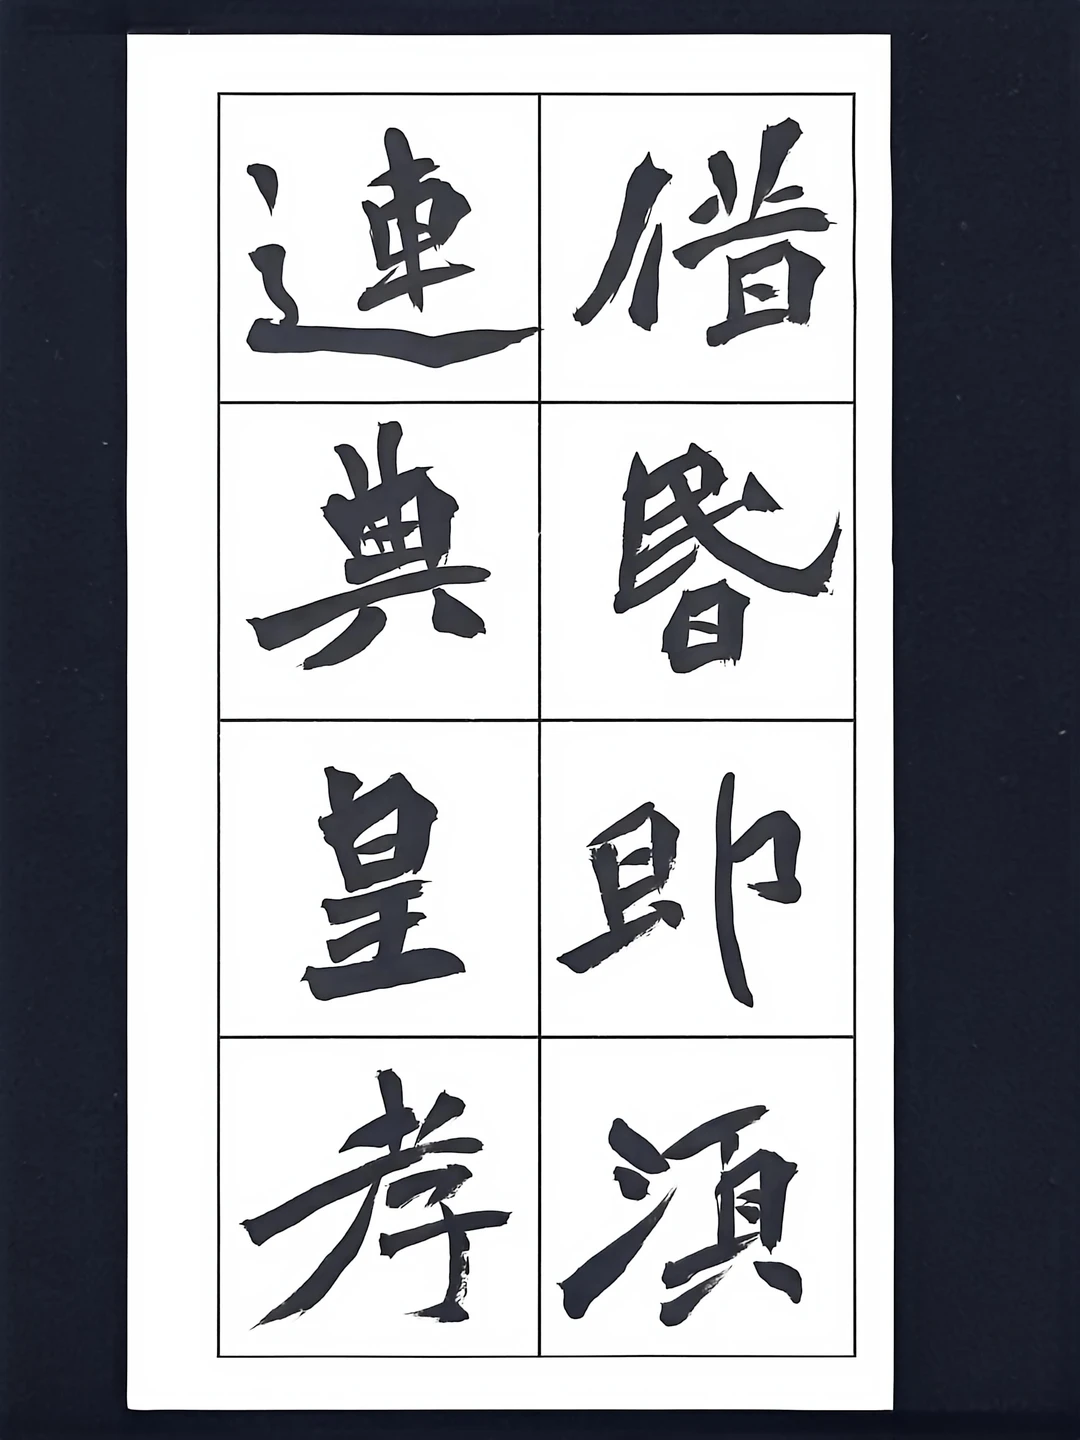 借昬即須
連典皇孝